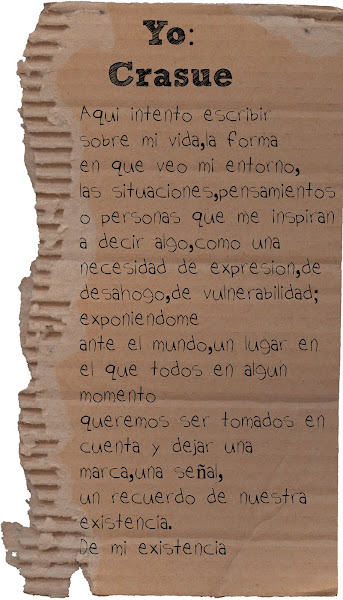 Yo:
Crasue
Aqui intento escribir
sobre mi vida,la forma
en que veo mi entorno,
las situaciones,pensamientos
o personas que me inspiran
a decir algo,como una
necesidad de expresion,de
desahogo,de vulnerabilidad;
exponiendome
ante el mundo,un lugar en
el que todos en algun
momento
queremos ser tomados en
cuenta y dejar una
marca,una señal,
un recuerdo de nuestra
existencia.
De mi existencia